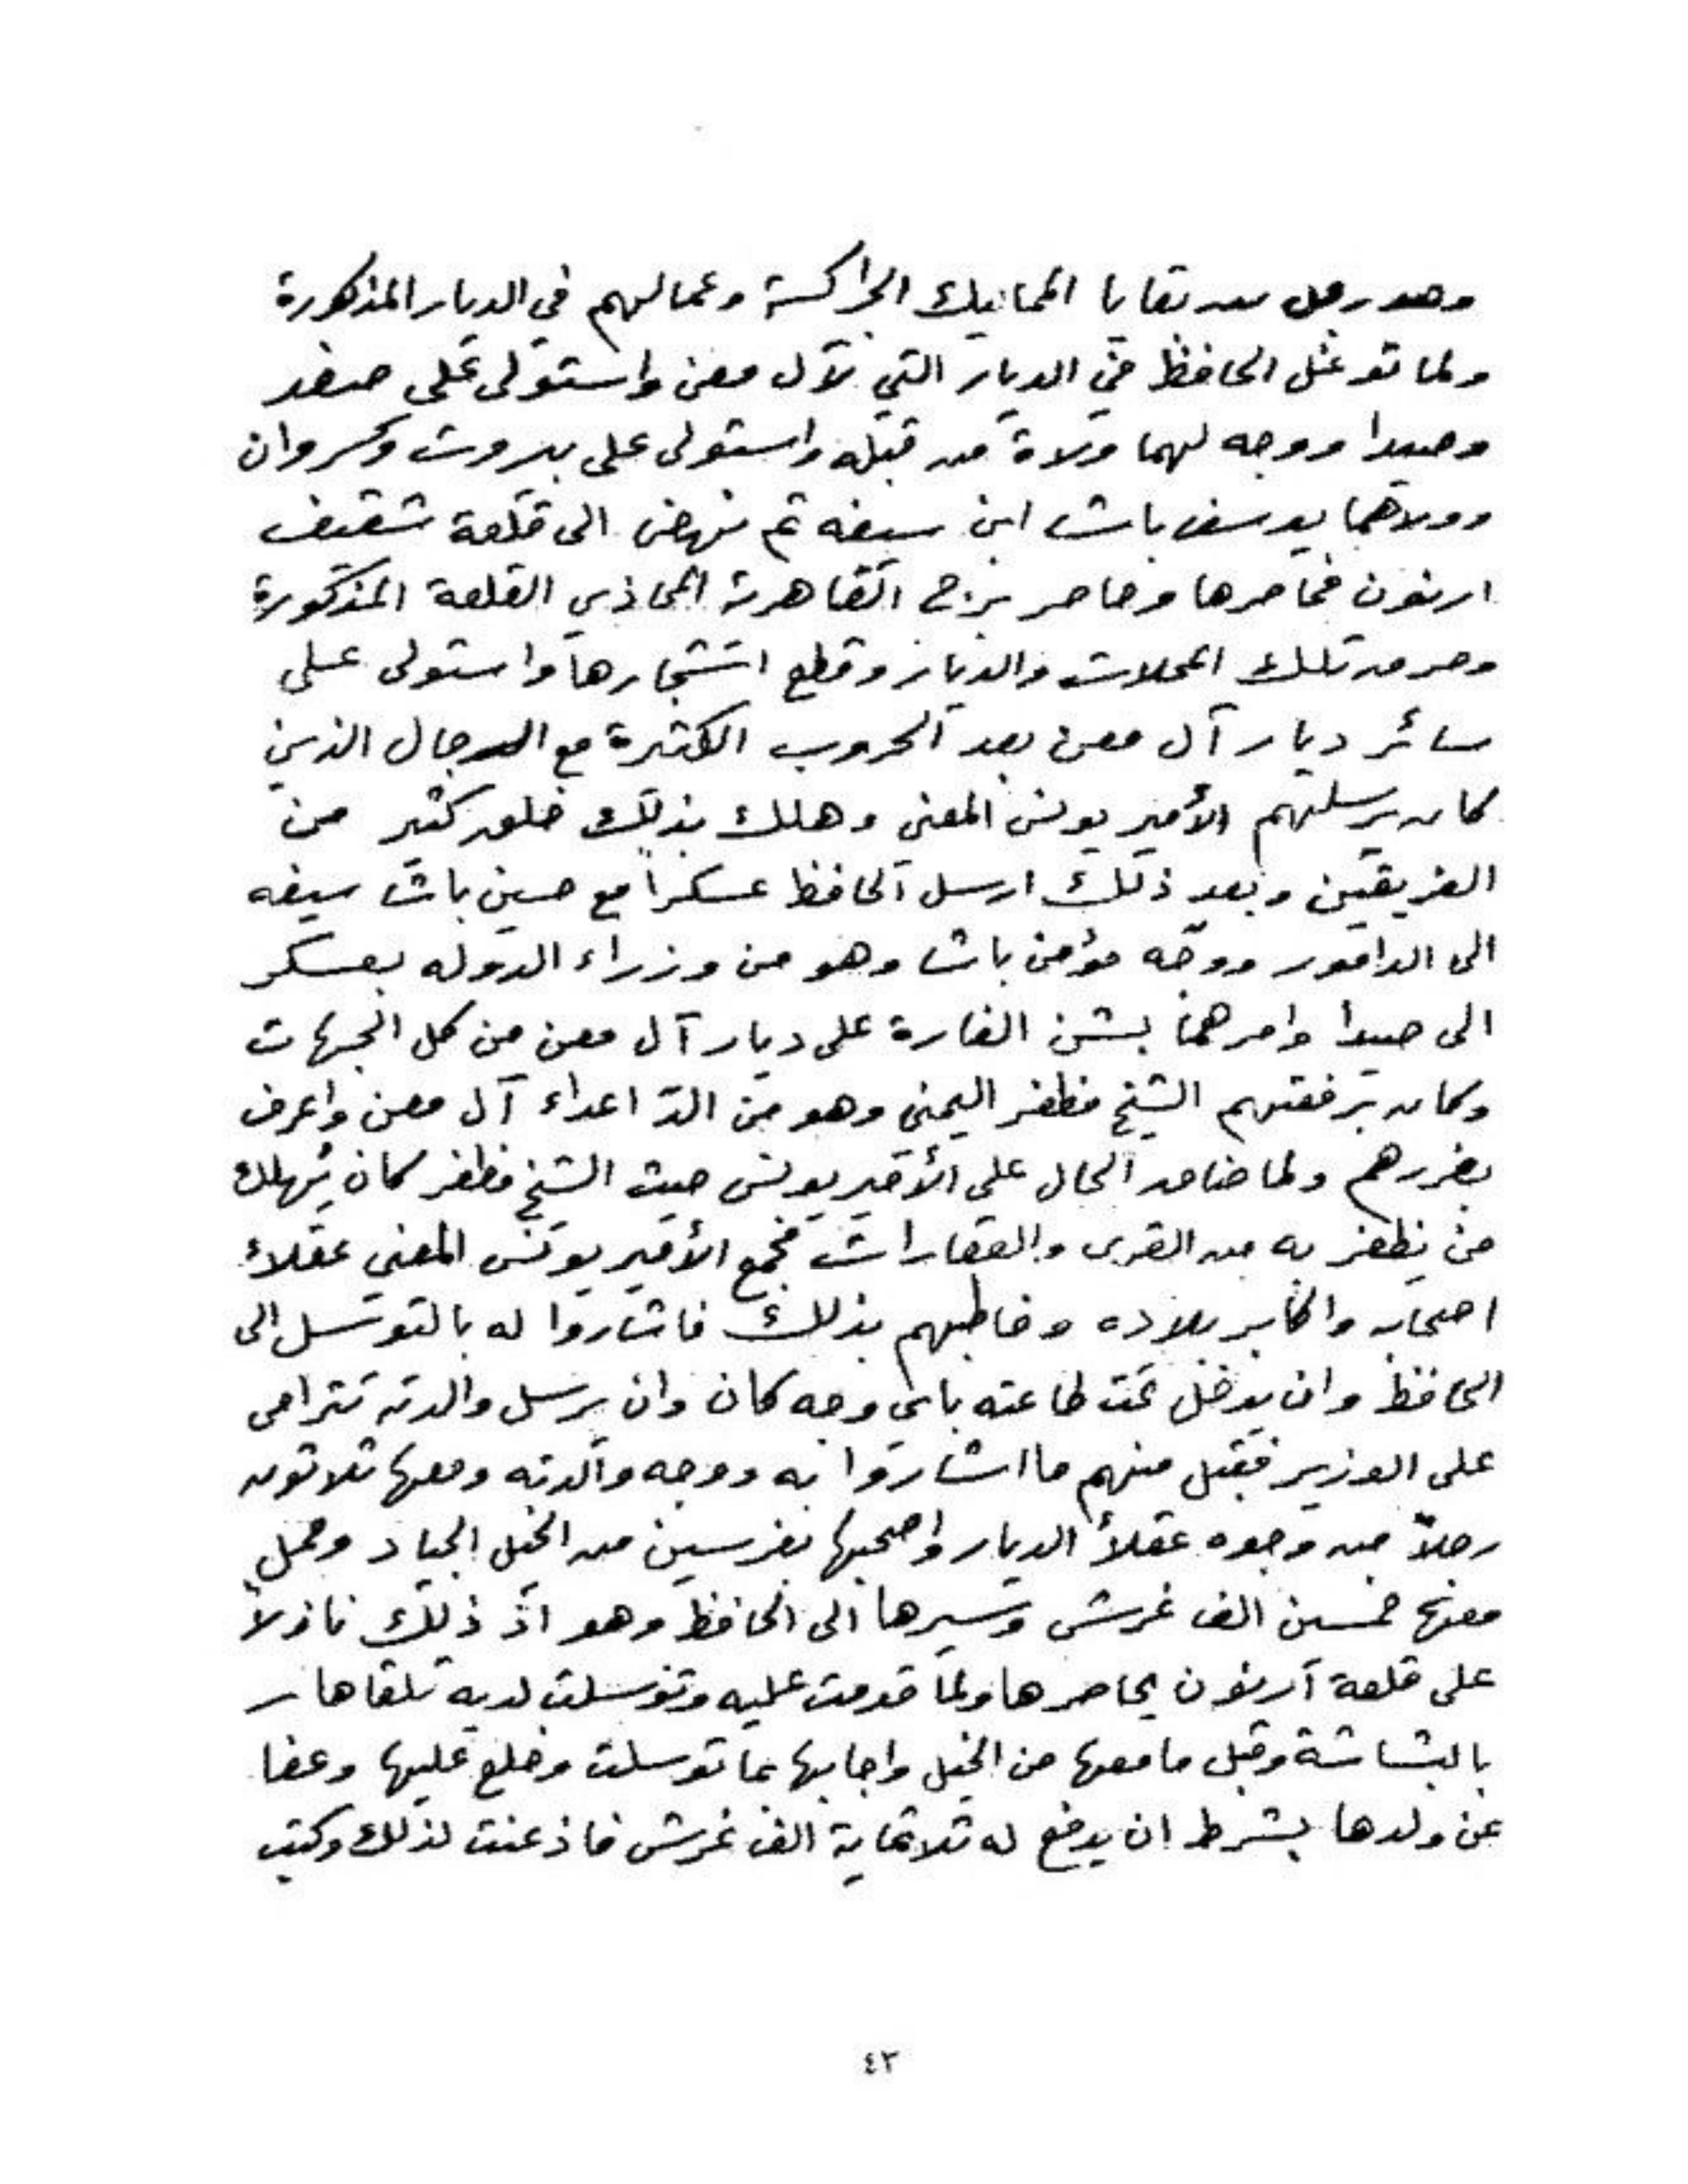 وهو رجل من بقايا المماليك الجراكسة وعمالهم في الديار المذكورة
ولما توغل الحافظ في الديار التي لآل معن واستولى على صفد
وصيدا ووجه لهما ولاة من قبله واستولى على بيروت وكسروان
وولاهما يوسف باشا ابن سيفه ثم نهض الى قلعة شقيف
ارنون فحاصرها وحاصر برج القاهرة المحاذي القلعة المذكورة
وحرق تلك المحلات والديار وقطع اشجارها واستولى على
سائر ديار آل معن بعد الحروب الكثيرة مع الرجال الذين
كان يرسلهم الأمير يونس المعني وهلك بذلك خلق كثير من
الفريقين وبعد ذلك ارسل الحافظ عسكراً مع حسين باشا سيفه
الى الدامور ووجه مؤمن باشا وهو من وزراء الدوله بعسكر
الى صيدا وامرهما بشن الغارة على ديار آل معن من كل الجهات
وكان برفقتهم الشيخ مظفر اليمني وهو من الدّ اعداء آل معن واعرف
بضررهم ولما ضاق الحال على الأمير يونس حيث الشيخ مظفر كان يهلك
من يظفر به من القرى والعقارات فجمع الأمير يونس المعني عقلاء
اصحابه واكابر بلاده وخاطبهم بذلك فاشاروا له بالتوسل الى
الحافظ وان يدخل تحت طاعته باي وجه كان وان يرسل والدته تترامى
على الوزير فقبل منهم ما اشاروا به ووجه والدته ومعها ثلاثون
رجلاً من وجوه عقلاً الديار واصحبها بفرسين من الخيل الجياد وحمل
معها خمسين الف غرش وسيرها الى الحافظ وهو اذ ذلك نازلاً
على قلعة آرنون يحاصرها ولما قدمت عليه وتوسلت لديه تلقاها
بالبشاشة وقبل ما معها من الخيل واجابها بما توسلت وخلع عليها وعفا
عن ولدها بشرط ان يدفع له ثلاثماية الف غرش فاذعنت لذلك وكتب
٤٣